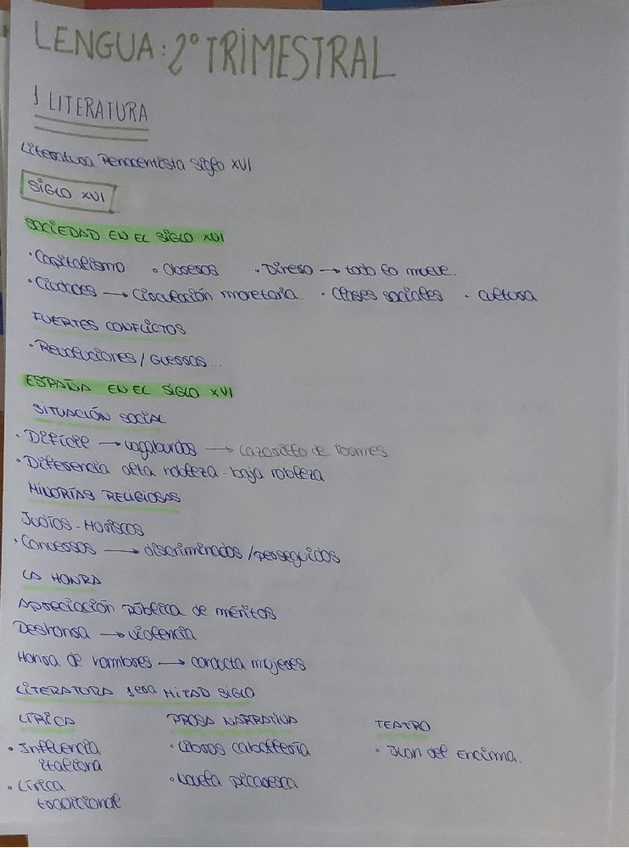 LENGUA: 2º TRIMESTRAL
1 LITERATURA
Literatura Renacentista Siglo XVI
SIGLO XVI
SOCIEDAD EN EL SIGLO XVI
· Capitalismo · Obreros · Dinero → todo lo mueve.
· Ciudades → Circulación monetaria. · Clases sociales · cultura
FUERTES CONFLICTOS
· Revoluciones / Guerras...
ESPAÑA EN EL SIGLO XVI
SITUACIÓN SOCIAL
· Difícil → vagabundos → Lazarillo de Tormes
· Diferencia alta nobleza - baja nobleza
MINORÍAS RELIGIOSAS
Judíos - Moriscos
· Conversos → discriminados / perseguidos
LA HONRA
Apreciación pública de méritos
Deshonra → violencia
Honra de hombres → conducta mujeres
LITERATURA 1era MITAD SIGLO
LÍRICA PROSA NARRATIVA TEATRO
· Influencia italiana
· Lírica tradicional
· Libros caballería
· Novela picaresca
· Juan del Encina.